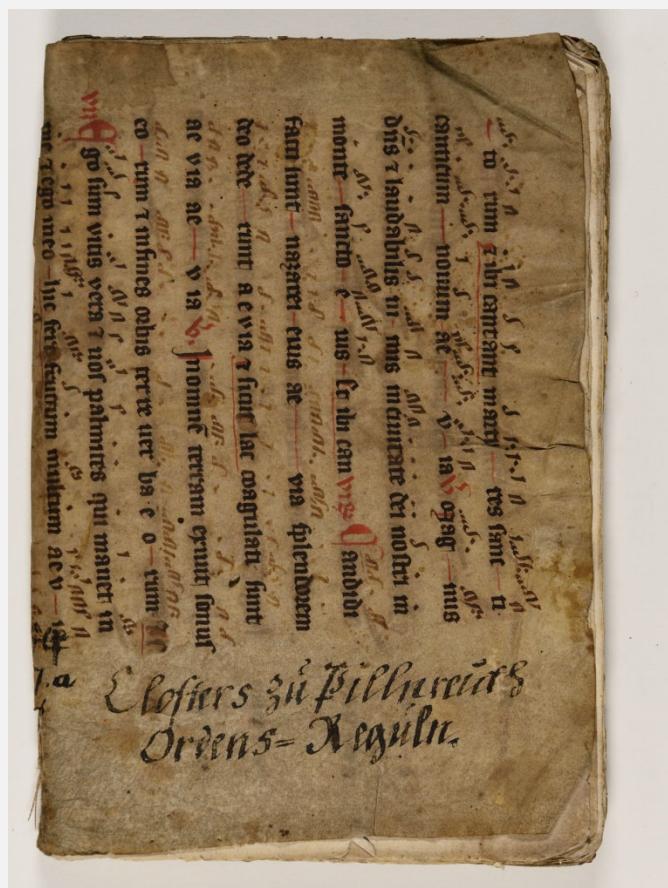 to rum ⁊ ibi cantant marty res sanc ti
canticum nouum ae v ia V ozag nus
dns ⁊ laudabilis ni mis in ciuitate dei nostri in
monte sancto e ius Et ibi can Candidi
facti sunt nazarei eius ae via splendorem
deo dede runt a e v i a ⁊ sicut lac coagulati sunt
ae v i a ae v i a V. In omnē terram exiuit sonus
eo rum ⁊ in fines orbis terre uer ba e o rum
Ego sum vitis vera ⁊ uos palmites qui manet in
me ⁊ ego in eo hic fert fructum multum ae v ia
Closters zů Pillnreuth
Ordens= Regŭln.